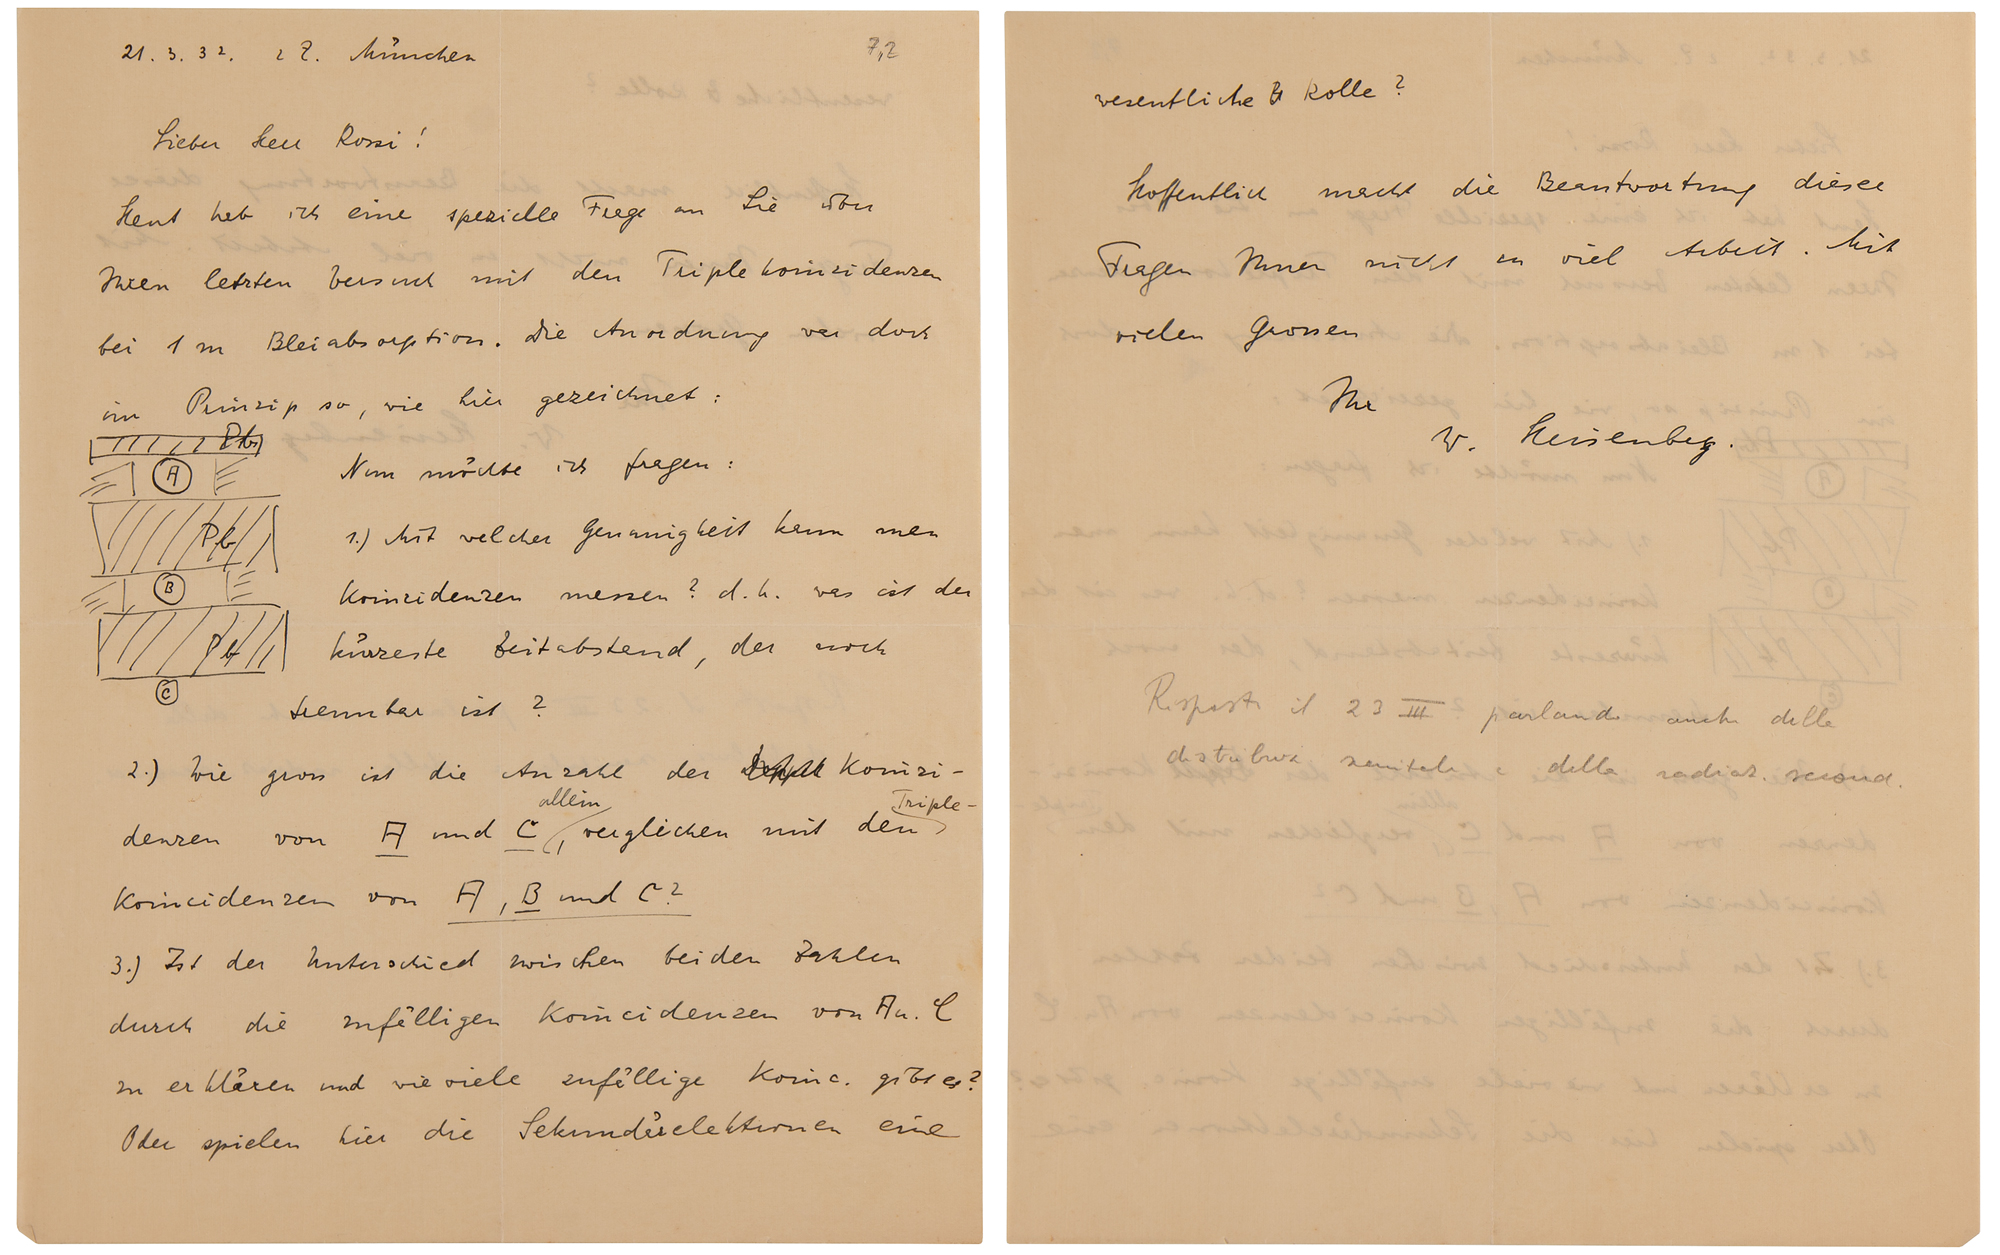 21. 3. 32. z Z. München
7,2
Lieber Herr Rossi!
Heut hab ich eine spezielle Frage an Sie über
Ihren letzten Versuch mit den Triplekoinzidenzen
bei 1 m Bleiabsorption. Die Anordnung war doch
im Prinzip so, wie hier gezeichnet:
Pb
A
Pb
B
Pb
C
Nun möchte ich fragen:
1.) Mit welcher Genauigkeit kann man
Koinzidenzen messen? d. h. was ist der
kürzeste Zeitabstand, der noch
trennbar ist?
2.) Wie gross ist die Anzahl der Koinzi-
denzen von A und C allein, verglichen mit den Triple-
Koincidenzen von A, B und C?
3.) Ist der Unterschied zwischen beiden Zahlen
durch die zufälligen Koincidenzen von A u. C
zu erklären und wie viele zufällige Koinc. gibt es?
Oder spielen hier die Sekundärelektronen eine
wesentliche Rolle?
Hoffentlich macht die Beantwortung dieser
Fragen Ihnen nicht zu viel Arbeit. Mit
vielen Grüssen
Ihr
W. Heisenberg.
Risposto il 23 III parlando anche della
distribuz zenitale e della radiaz. second.